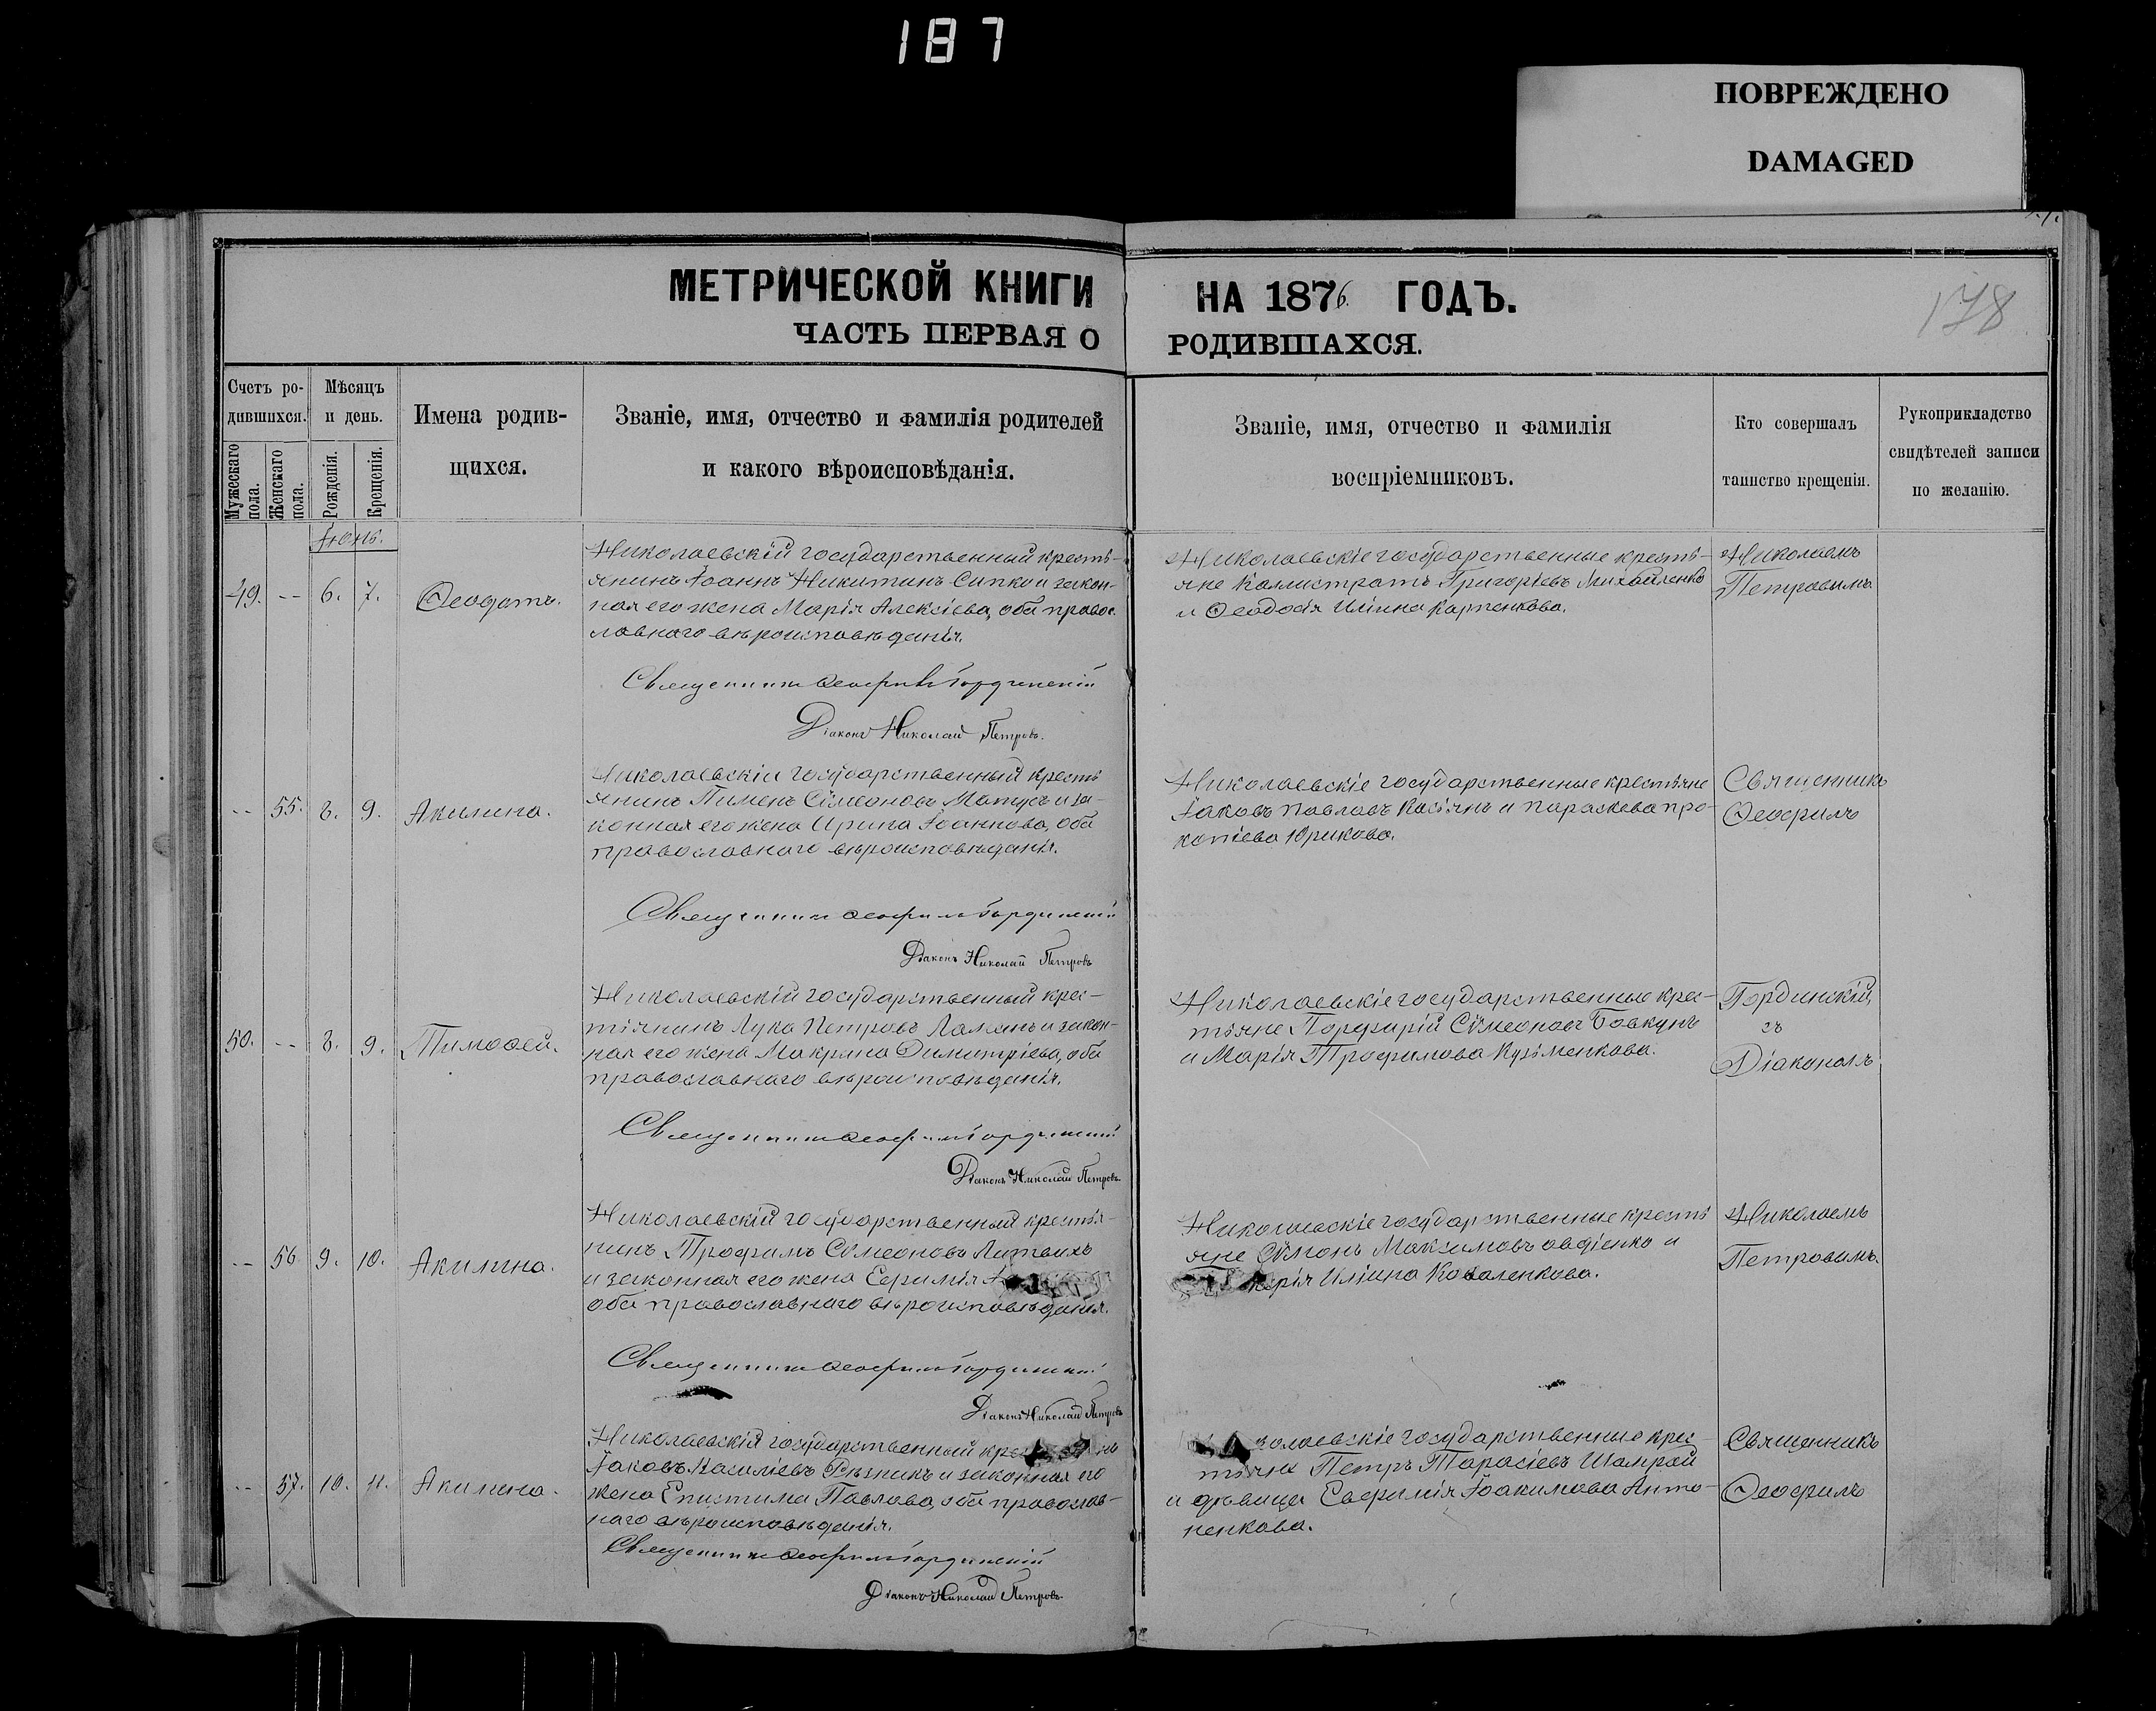 187
ПОВРЕЖДЕНО
DAMAGED
МЕТРИЧЕСКОЙ КНИГИ НА 1876 ГОДЪ.
178
ЧАСТЬ ПЕРВАЯ О РОДИВШАХСЯ.
Счетъ ро-
дившихся.
Мужескаго пола.
Женскаго пола.
Мѣсяцъ
и день.
Рожденія.
Крещенія.
Имена родив-
щихся.
Званіе, имя, отчество и фамилія родителей
и какого вѣроисповѣданія.
Званіе, имя, отчество и фамилія
воспріемниковъ.
Кто совершалъ
таинство крещенія.
Рукоприкладство
свидѣтелей записи
по желанію.
Іюнь.
49. -- 6. 7. Ѳеодотъ.
Николаевскій государственный кресть-
янинъ Іоаннъ Никитинъ Сипко и закон-
ная его жена Марія Алексіева, оба правос-
лавного вѣроисповѣданія.
Священникъ Ѳеофилъ Гординскій
Діаконъ Николай Петровъ.
Николаевскіе государственные кресть-
яне Калистратъ Григоріевъ Михайленко
и Ѳеодосія Иліина Карпенкова.
Николаемъ
Петровымъ
-- 55. 8. 9. Акилина.
Николаевскій государственный кресть
янинъ Пименъ Сѵмеоновъ Матусъ и за-
конная его жена Ирина Іоаннова, оба
православнаго вѣроисповѣданія.
Священникъ Ѳеофилъ Гординскій
Діаконъ Николай Петровъ
Николаевскіе государственные крестьяне
Іаковъ Павловъ Касьянъ и Параскева Про-
копіева Юрикова.
Священникъ
Ѳеофилъ
50. -- 8. 9. Тимоѳей.
Николаевскій государственный крес-
тьянинъ Лука Петровъ Ламанъ и закон-
ная его жена Макрина Димитріева, оба
православнаго вѣроисповѣданія.
Священникъ Ѳеофилъ Гординскій
Діаконъ Николай Петровъ.
Николаевскіе государственные крес-
тьяне Порфирій Сѵмеоновъ Бовкунъ
и Марія Трофимова Кузьменкова.
Гординскій,
съ
Діакономъ
-- 56 9. 10. Акилина.
Николаевскій государственный крестья-
нинъ Трофимъ Сѵмеоновъ Литвинъ
и законная его жена Евфимія
оба православнаго вѣроисповѣданія.
Священникъ Ѳеофилъ Гординскій
Діаконъ Николай Петровъ
Николаевскіе государственные кресть
яне Сѵмонъ Максимовъ Овдіенко и
Марія Иліина Коваленкова.
Николаемъ
Петровымъ.
-- 57. 10. 11. Акилина.
Николаевскій государственный
Іаковъ Василіевъ Рѣзникъ и законная его
жена Епистима Павлова, оба православ-
наго вѣроисповѣданія.
Священникъ Ѳеофилъ Гординскій
Діаконъ Николай Петровъ.
Николаевскіе государственные крес-
тьяне Петръ Тарасіевъ Шапрай
и дѣвица Евфимія Іоакимова Анто-
ненкова.
Священникъ
Ѳеофилъ